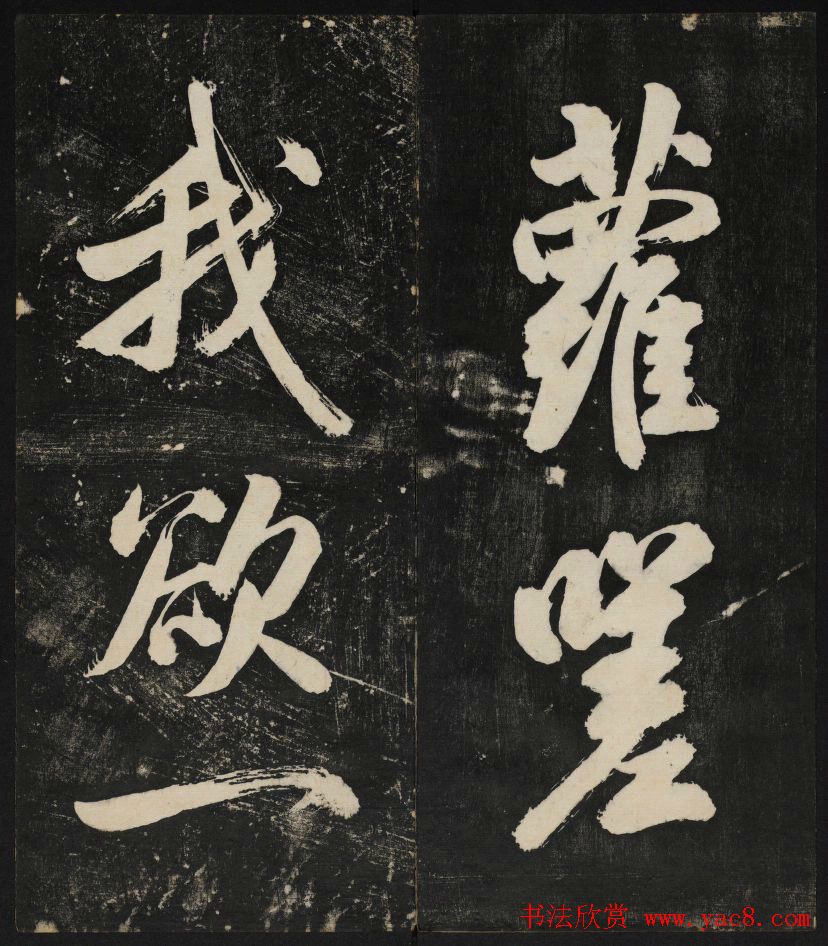 蘿嗟
我欲一
书法欣赏 www.yac8.com